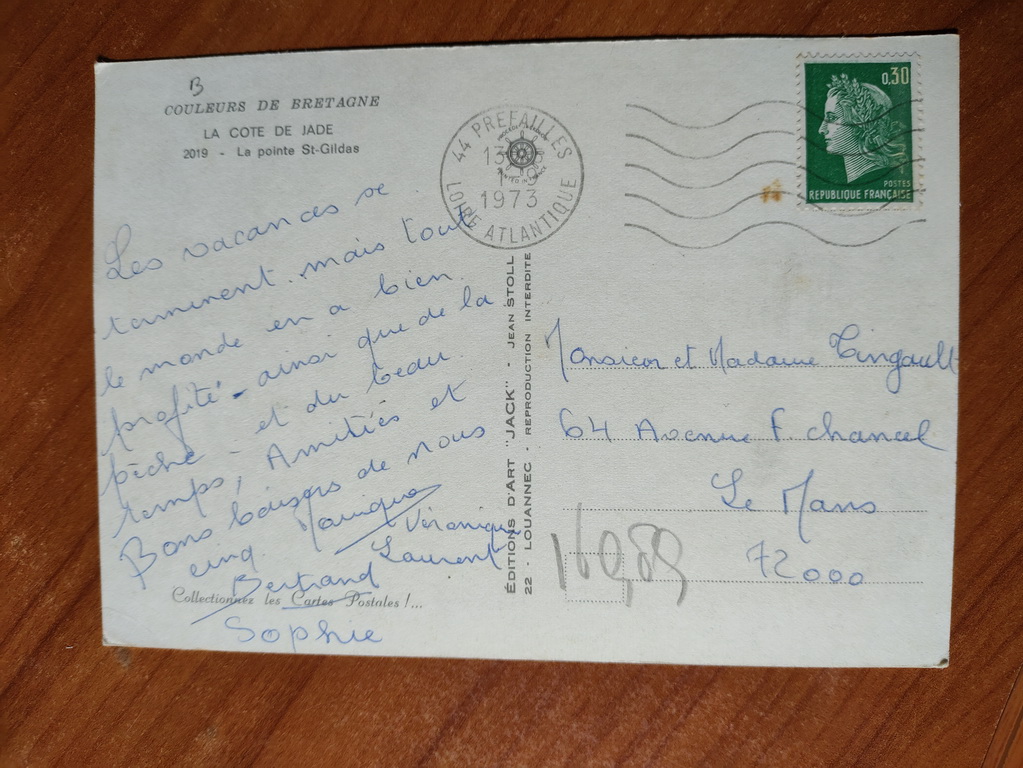 B
COULEURS DE BRETAGNE
LA COTE DE JADE
2019 - La pointe St-Gildas
Les vacances se
terminent. mais tout
le monde en a bien
profité - ainsi que de la
pêche - et du beau
temps, Amitiés et
Bons baisers de nous
cinq.
Véronique
Laurent
Bertrand
Collectionnez les Cartes Postales !...
Sophie
44 PREFAILLES
1973
LOIRE ATLANTIQUE
ÉDITIONS D'ART "JACK" - JEAN STOLL
22 - LOUANNEC - REPRODUCTION INTERDITE
0,30
POSTES
REPUBLIQUE FRANÇAISE
Monsieur et Madame Tingault
64 Avenue F. Chancel
Le Mans
72000